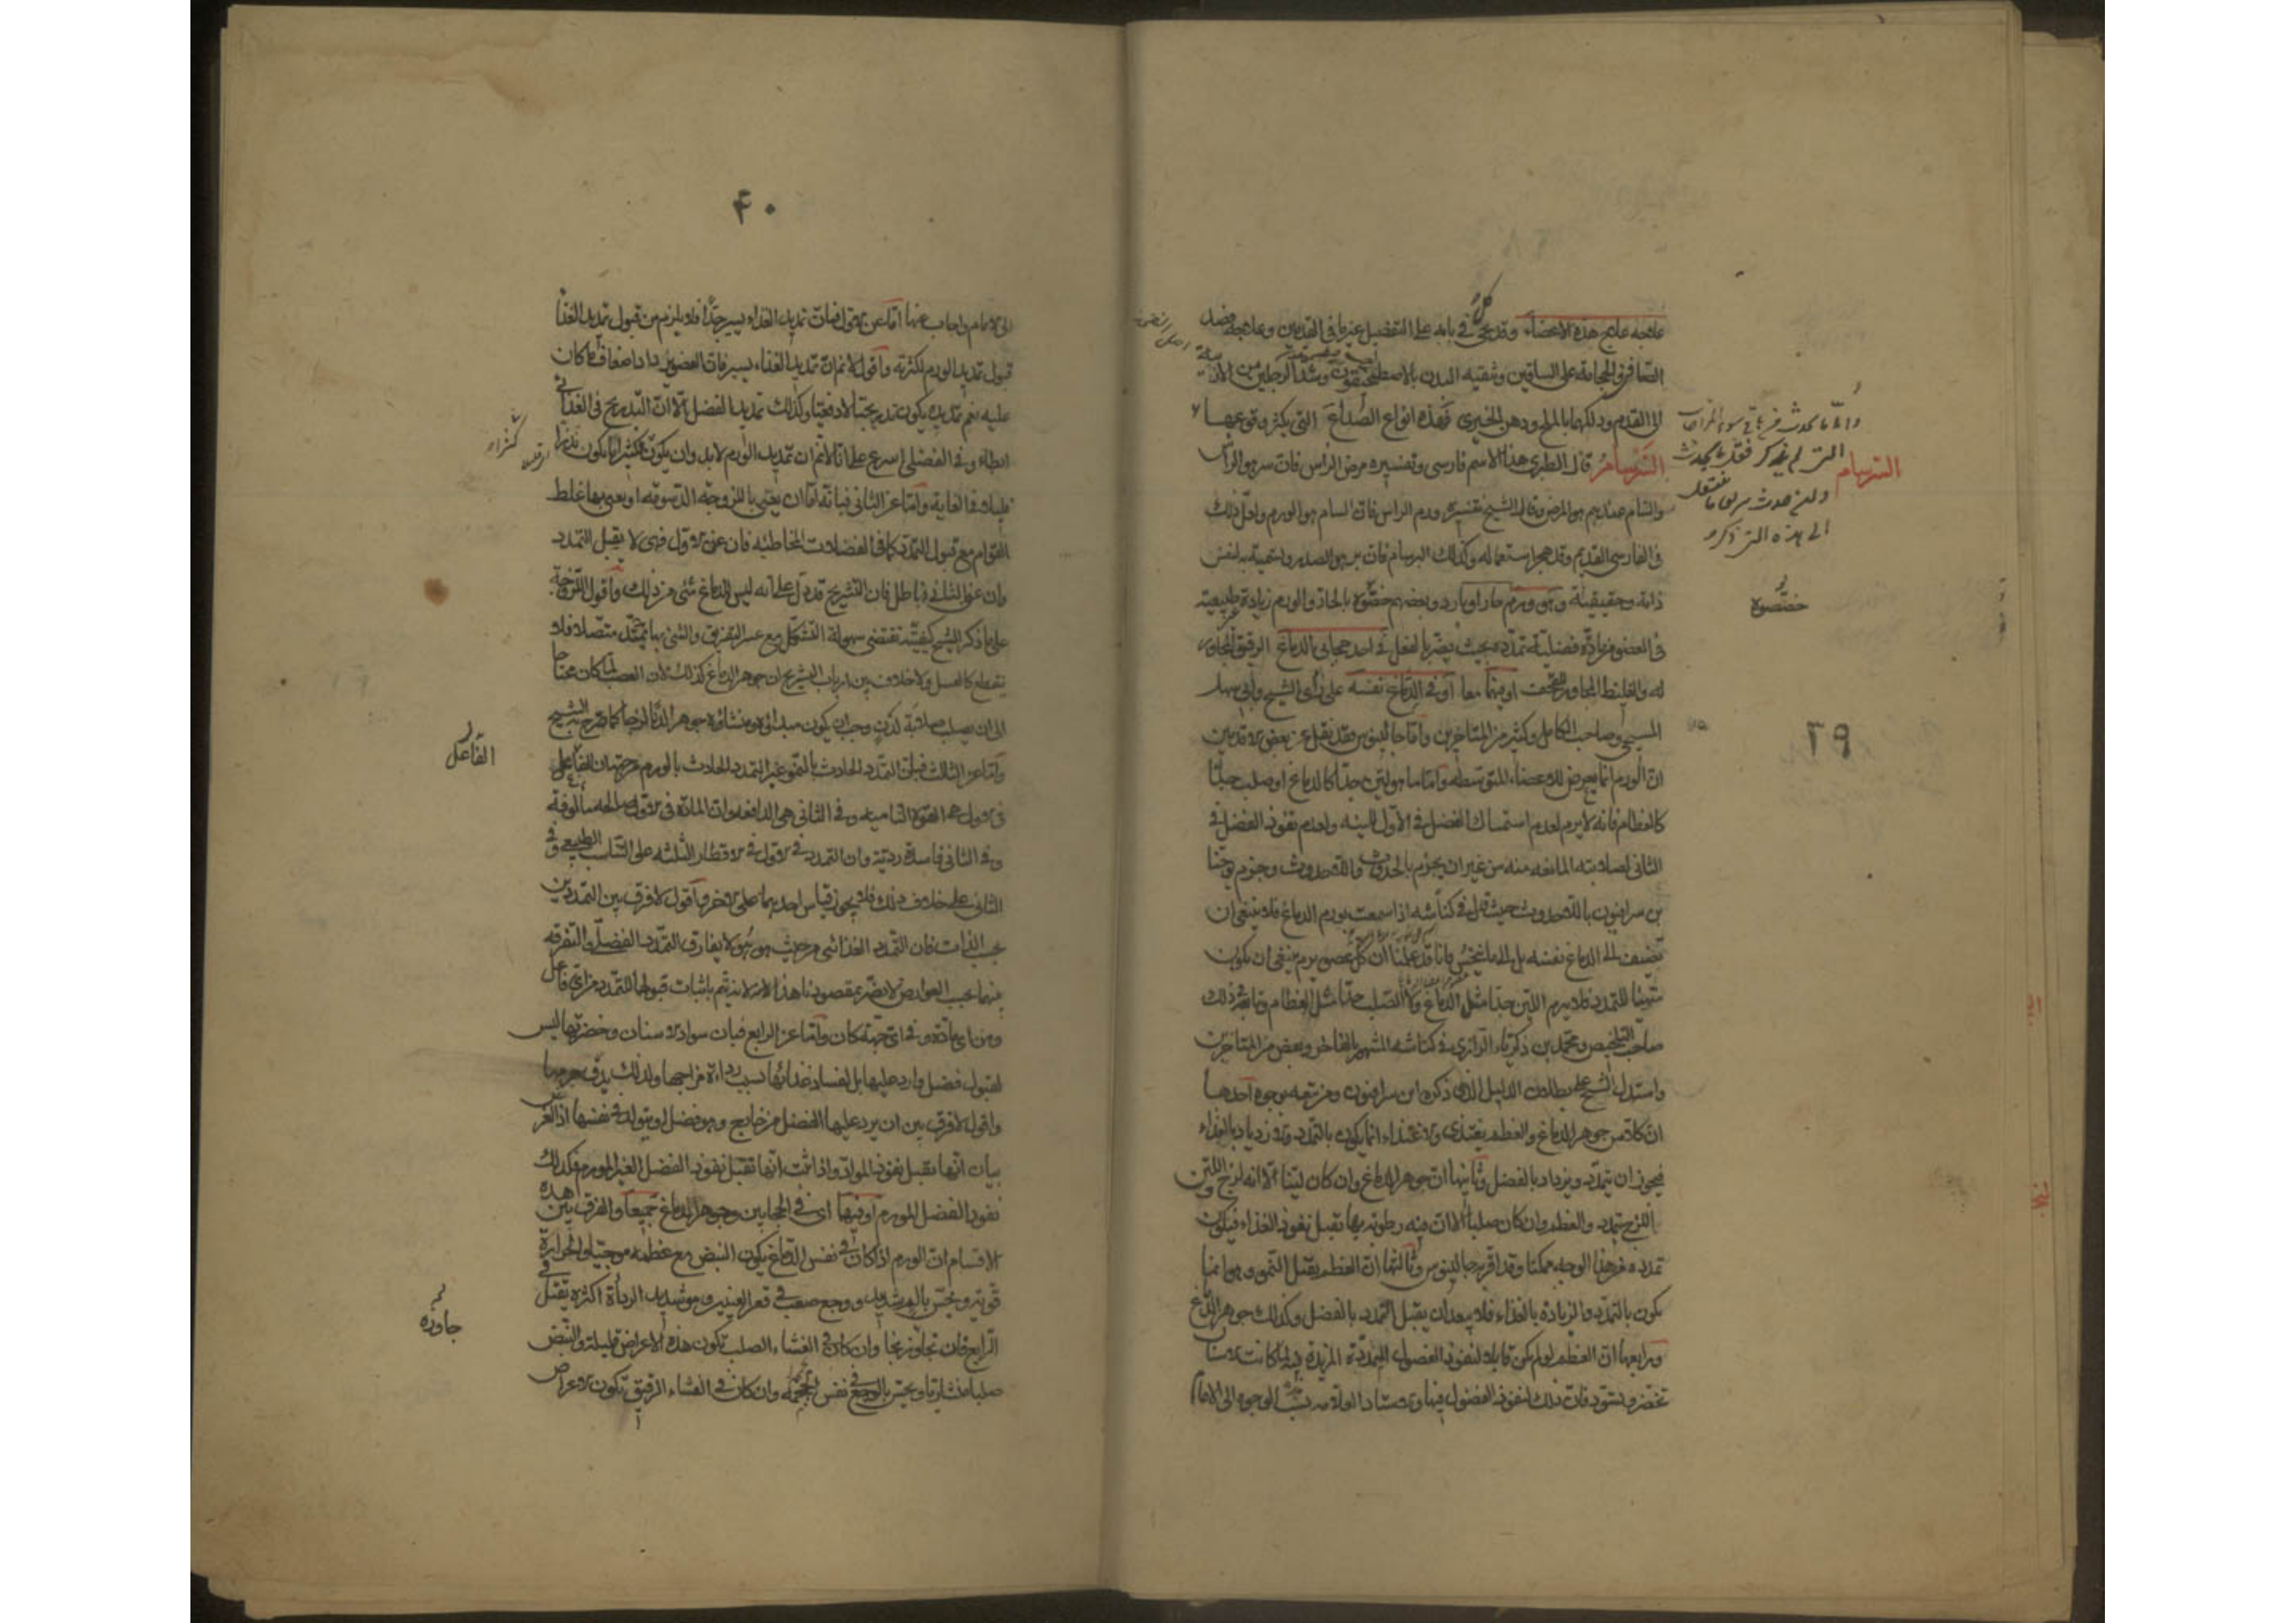 علاجه علاج هذه الاعضاء وقد يجئ كل في بابه على التفصيل غير ما في القدمين وعلاجه فصد
الصافن والحجامة على الساقين وتنقية البدن بالاصطمخيقون وشد الرجلين من
الى القدم ودلكهما بالملح ودهن الخيرى فهذه انواع الصداع التى يكثر وقوعها
السرسام قال الطبرى هذا الاسم فارسى وتفسيره مرض الرأس فان سر هو الرأس
والسام عندهم هو المرض وقال الشيخ تفسيره ورم الراس فان السام هو الورم ولعل ذلك
فى الفارسى القديم وقد هجر استعماله وكذلك البرسام فان بر هو الصدر
وهو ورم حار او بارد وبعضهم خصصوه بالحار والورم زيادة غير طبيعية
فى العضو من مادة فضلية تمدده بحيث يضر بالفعل فى احد حجابى الدماغ الرقيق المجاور
له والغليظ المجاور للقحف او فيهما معا او فى الدماغ نفسه على رأى الشيخ وأبى سهل
المسيحى وصاحب الكامل وكثير من المتأخرين واما جالينوس فقد نقل عن بعض الاقدمين
ان الورم انما يعرض للاعضاء المتوسطة واما ما هو لين جدا كالدماغ او صلب جدا
كالعظام فانه لا يرم لعدم استمساك الفضل فى الاول للينه ولعدم نفوذ الفضل فى
الثانى لصلابته المانعة منه من غير ان يجزم بالحدوث واللاحدوث وجزم يوحنا
بن سرافيون باللاحدوث حيث قال فى كناشه اذا سمعت بورم الدماغ فلا ينبغى ان
تضيف الى الدماغ نفسه بل الى اماغنجس فانا قد علمنا ان كل عضو يرم ينبغى ان يكون
متهيئا للتمدد فلا يرم اللين جدا مثل الدماغ ولا الصلب جدا مثل العظام وتابعه فى ذلك
صاحب التلخيص ومحمد بن زكرياء الرازى فى كناشه المشهور بالفاخر وبعض من المتأخرين
واستدل الشيخ على بطلان الدليل الذى ذكره ابن سرافيون ومن تبعه بوجوه احدها
ان كلا من جوهر الدماغ والعظم يغتذى والاغتذاء انما يكون بالتمدد والازدياد بالغذاء
فيجوز ان يتمدد ويزداد بالفضل وثانيها ان جوهر الدماغ وان كان لينا الا انه لزج واللين
اللزج يتمدد والعظم وان كان صلبا الا ان فيه رطوبة بها تقبل نفوذ الغذاء فيكون
تمدده من هذا الوجه ممكنا وقد اقر به جالينوس وثالثها ان العظم يقبل النمو وهو انما
يكون بالتمدد والزيادة بالغذاء فلا يبعد ان يقبل التمدد بالفضل وكذلك جوهر الدماغ
ورابعها ان العظم لو لم يكن قابلا لنفوذ الفضول الممددة المزيدة فيه لما كانت الاسنان
تخضر وتسود فان ذلك لنفوذ الفضول فيها والاستاد العلامه نسب هذه الوجوه الى الامام
السرسام
خصصوه
٣٩
٤٠
الى الامام واجاب عنها اما عن الاول فبان تمديد الغذاء يسير جدا فلا يلزم من قبول تمديد الغذاء
قبول تمديد الورم لكثرته واقول لا نم ان تمديد الغذاء يسير فان العضو يزداد اضعاف ما كان
عليه نعم تمديده يكون تدريجيا لا دفعيا وكذلك تمديد الفضل الا ان التدريج فى الغذائى
ابطاء وفى الفضلى اسرع على انا لا نم ان تمديد الورم لابد وان يكون كثيرا
قليلا فى الغاية واما عن الثانى فبانه اما ان يعنى باللزوجة الدسومة او يعنى بها غلظ
القوام مع قبول التمدد كما فى الفضلات المخاطية فان عنى الاول فهى لا يقبل التمدد
وان عنى الثانى فباطل فان التشريح قد دل على انه ليس للدماغ شئ من ذلك واقول اللزوجة
على ما ذكر الشيخ كيفية تقتضى سهولة التشكل مع عسر التفريق والشئ بها يمتد متصلا فلا
ينقطع كالعسل ولا خلاف بين ارباب التشريح ان جوهر الدماغ كذلك لان العصب لما كان محتاجا
الى ان يصلب صلابة لدن وجب ان يكون مبدأه ومنشأوه جوهر الدماغ لزجا كما صرح به الشيخ
واما عن الثالث فبان التمدد الحادث بالنمو غير التمدد الحادث بالورم من جهة ان الفاعل
فى الاول هى القوة النامية وفى الثانى هى الدافعة وان المادة فى الاول صالحة مألوفة
وفى الثانى فاسدة ردية وان التمدد فى الاول فى الاقطار الثلثه على التناسب الطبيعى وفى
الثانى على خلاف ذلك فلا يجوز قياس احدهما على الاخر واقول لا فرق بين التمددين
بحسب الذات فان التمدد الغذائى من حيث هو هو لا يفارق التمدد الفضلى والتفرقه
بينهما بحسب العوارض لا يضر بمقصودنا هذا لانه يتم باثبات قبولها للتمدد من اى فاعل
ومن اى مادة وفى اى جهة كان واما عن الرابع فبان سواد الاسنان وخضرتها ليس
لقبول فضل وارد عليها بل لفساد غذائها بسبب رداءة مزاجها ولذلك يدق جرمها
واقول لا فرق بين ان يرد عليها الفضل من خارج وهو فضل او يتولد فى نفسها اذ الغرض
بيان انها تقبل نفوذ المواد واذا ثبت انها تقبل نفوذ الفضل الغير المورم فكذلك
نفوذ الفضل المورم او فيها اى فى الحجابين وجوهر الدماغ جميعا والفرق بين هذه
الاقسام ان الورم اذا كان فى نفس الدماغ يكون النبض مع عظمه موجيا والحرارة
قوية ويحس بالم شديد ووجع صعب فى قعر العينين وهو شديد الرداءة اكثره يقتل فى
الرابع فان تجاوز نجا وان كان فى الغشاء الصلب تكون هذه الاعراض قليلة والنبض
صلبا منشاريا ويحس بالوجع فى نفس الجمجمة وان كان فى الغشاء الرقيق تكون الاعراض
الفاعل
جاوزه